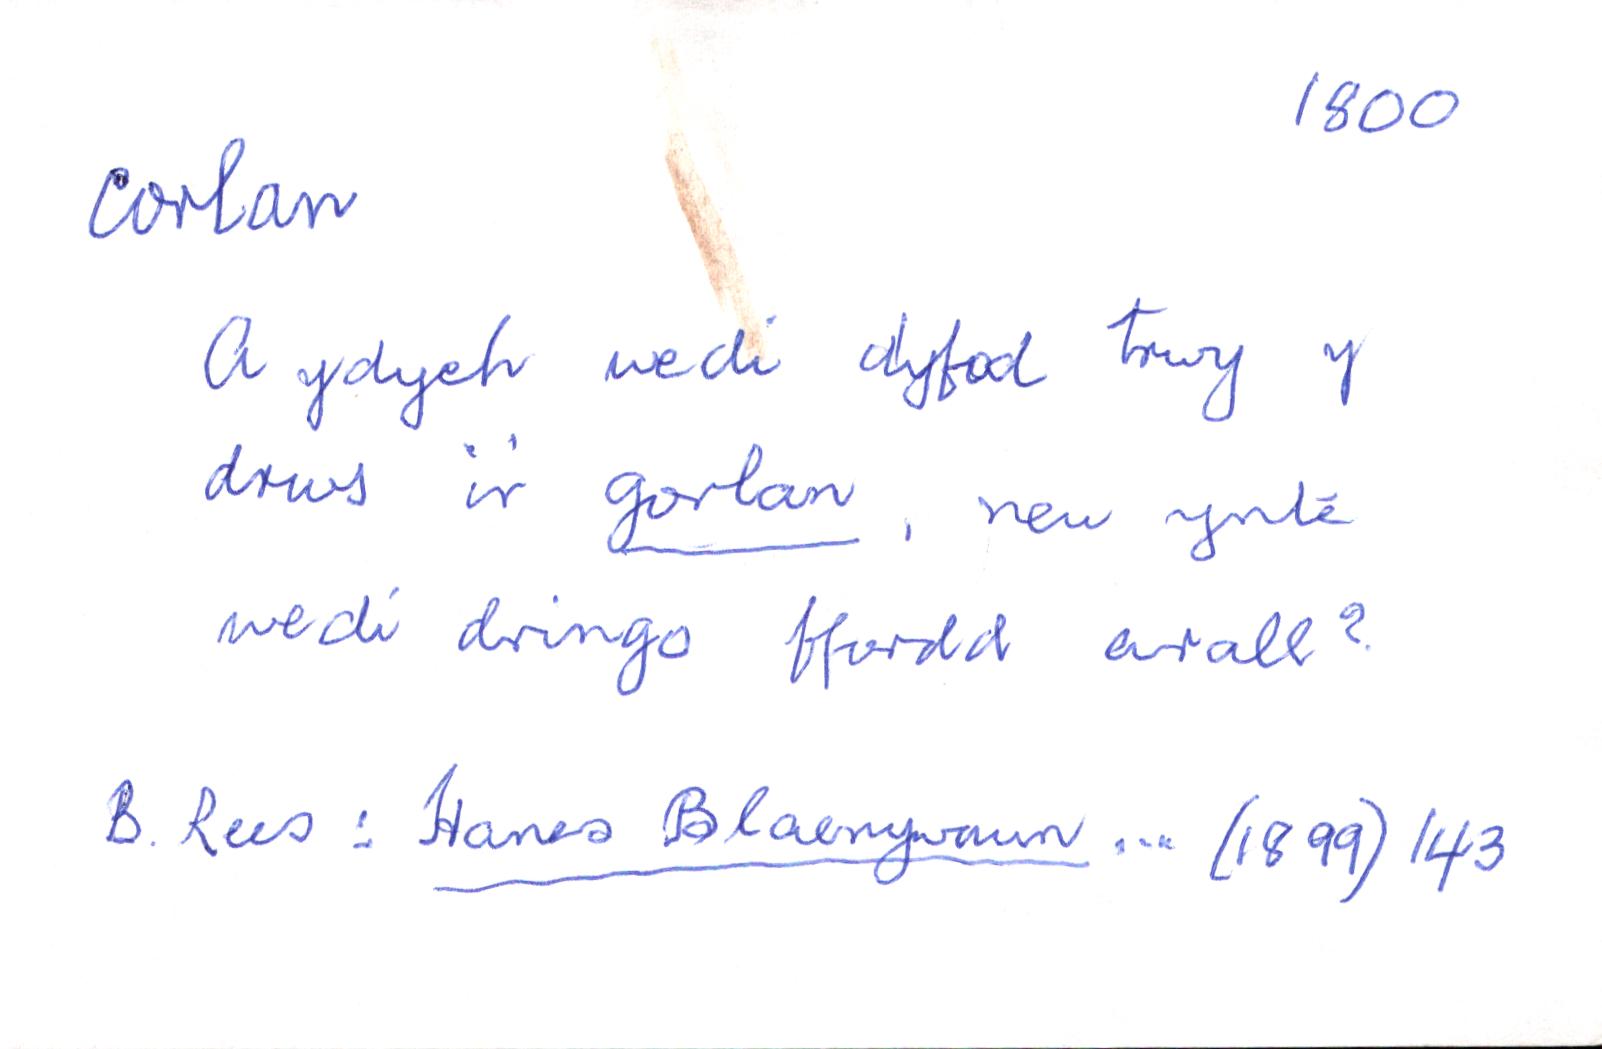 1800
corlan
A ydych wedi dyfod trwy y
drws i'r gorlan, neu yntē
wedi dringo ffordd arall?
B. Rees: Hanes Blaenywaun ... (1899) 143